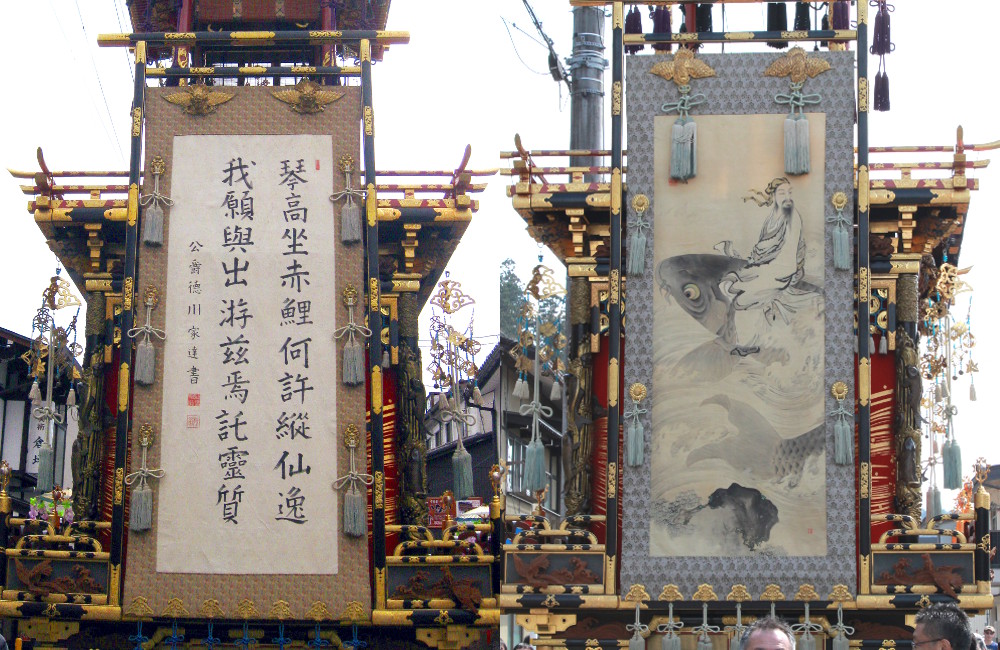 琴高坐赤鯉何許縱仙逸
我願與出游茲焉託靈質
公爵德川家達書